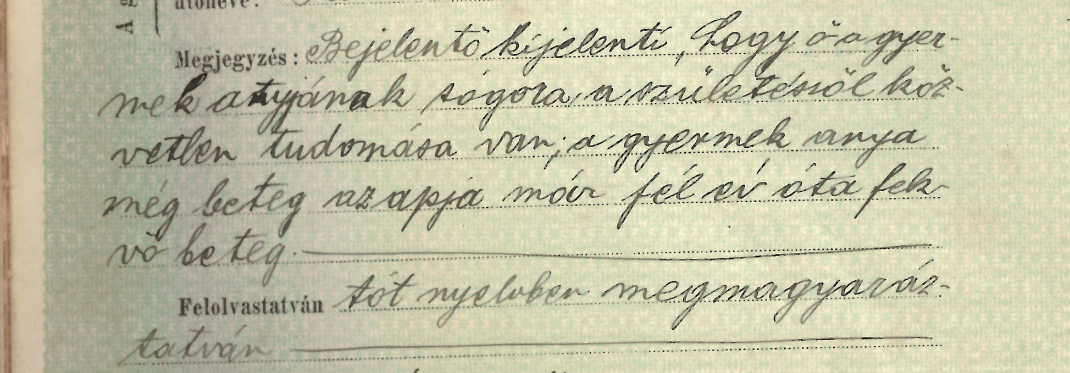 utóneve:
Megjegyzés: Bejelentő kijelenti, hogy ő a gyer-
mek atyjának sógora, a születésről köz-
vetlen tudomása van; a gyermek anya
még beteg az apja már fél év óta fek-
vő beteg.
Felolvastatván tót nyelvben megmagyaráz-
tatván